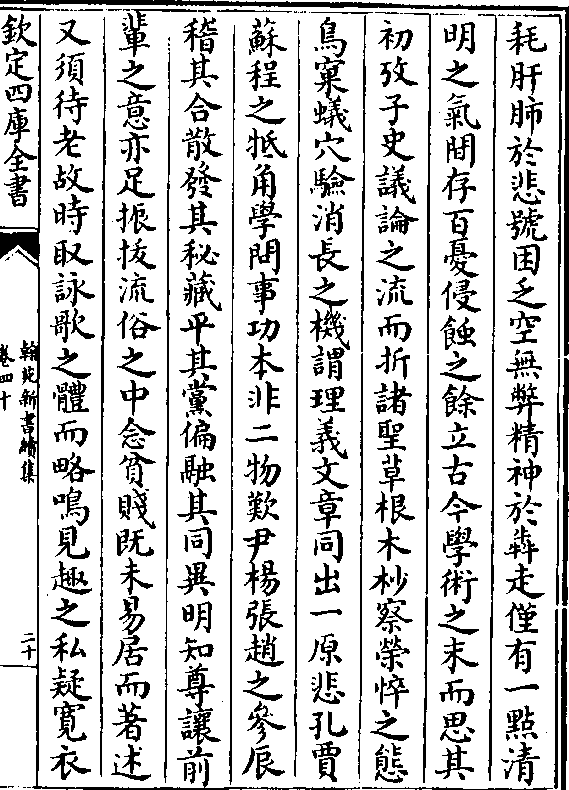 耗肝肺於悲號困乏空無弊精神於犇走僅有一點清
明之氣間存百憂侵蝕之餘立古今學術之末而思其
初攷子史議論之流而折諸聖草根木杪察榮悴之態
鳥窠蟻穴驗消長之機謂理義文章同出一原悲孔賈
蘇程之抵角學問事功本非二物歎尹楊張趙之參辰
稽其合散發其秘藏平其黨偏融其同異明知尊讓前
輩之意亦足振拔流俗之中念貧賤既未易居而著述
又須待老故時取詠歌之體而略鳴見趣之私疑寬衣
欽定四庫全書
翰苑新書續集
卷四十
二十